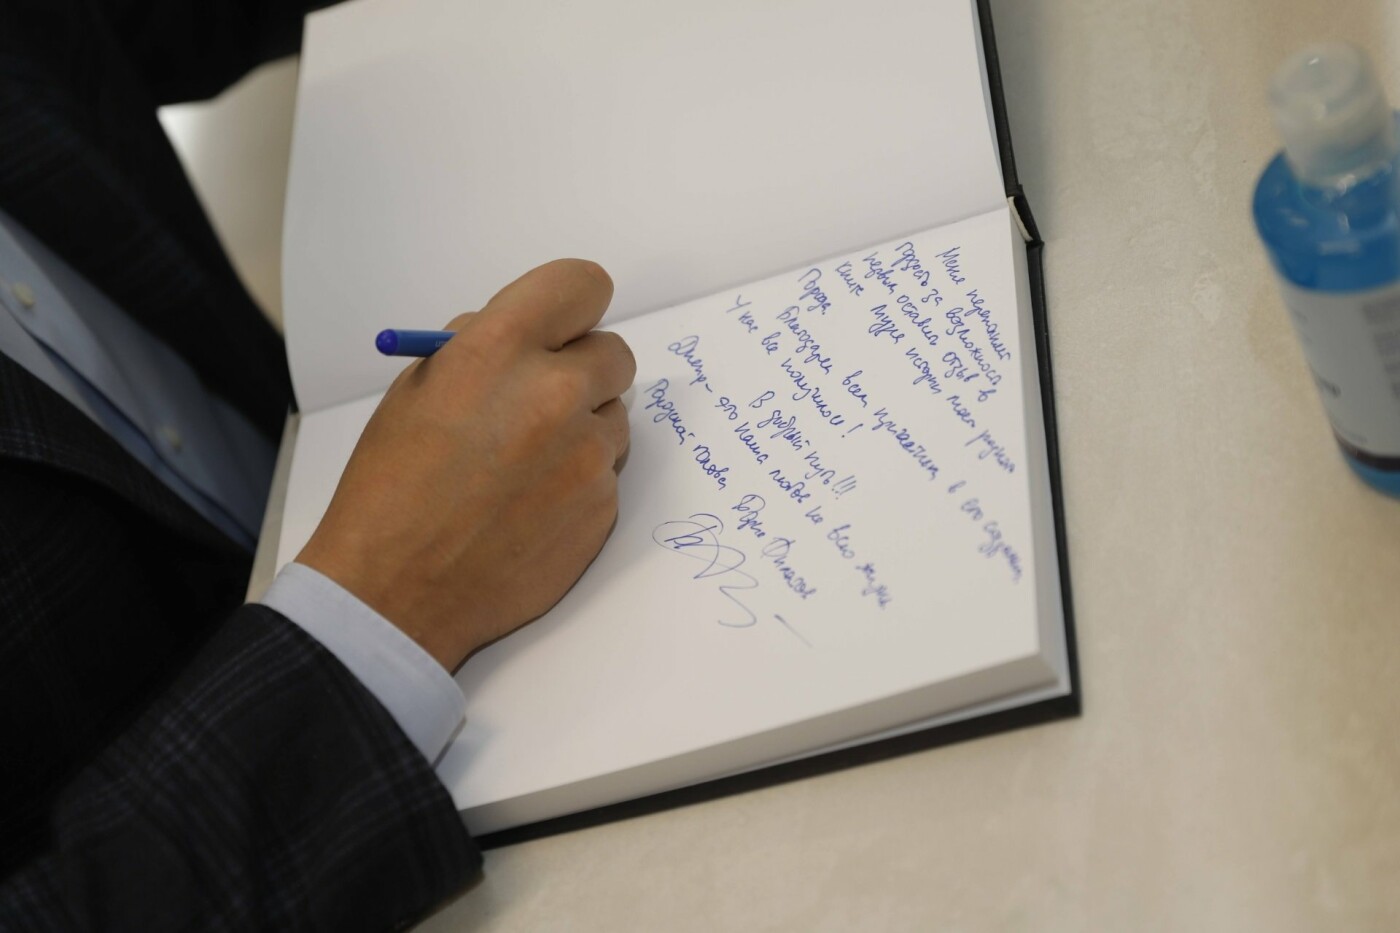 Меня переполняет
гордость за возможность
первым оставить отзыв в
книге Музея истории моего родного
Города
Благодарен всем причастным к его созданию
У нас все получилось!
В добрый путь!!!
Днепр - это наша любовь на всю жизнь
Городской голова Борис Филатов